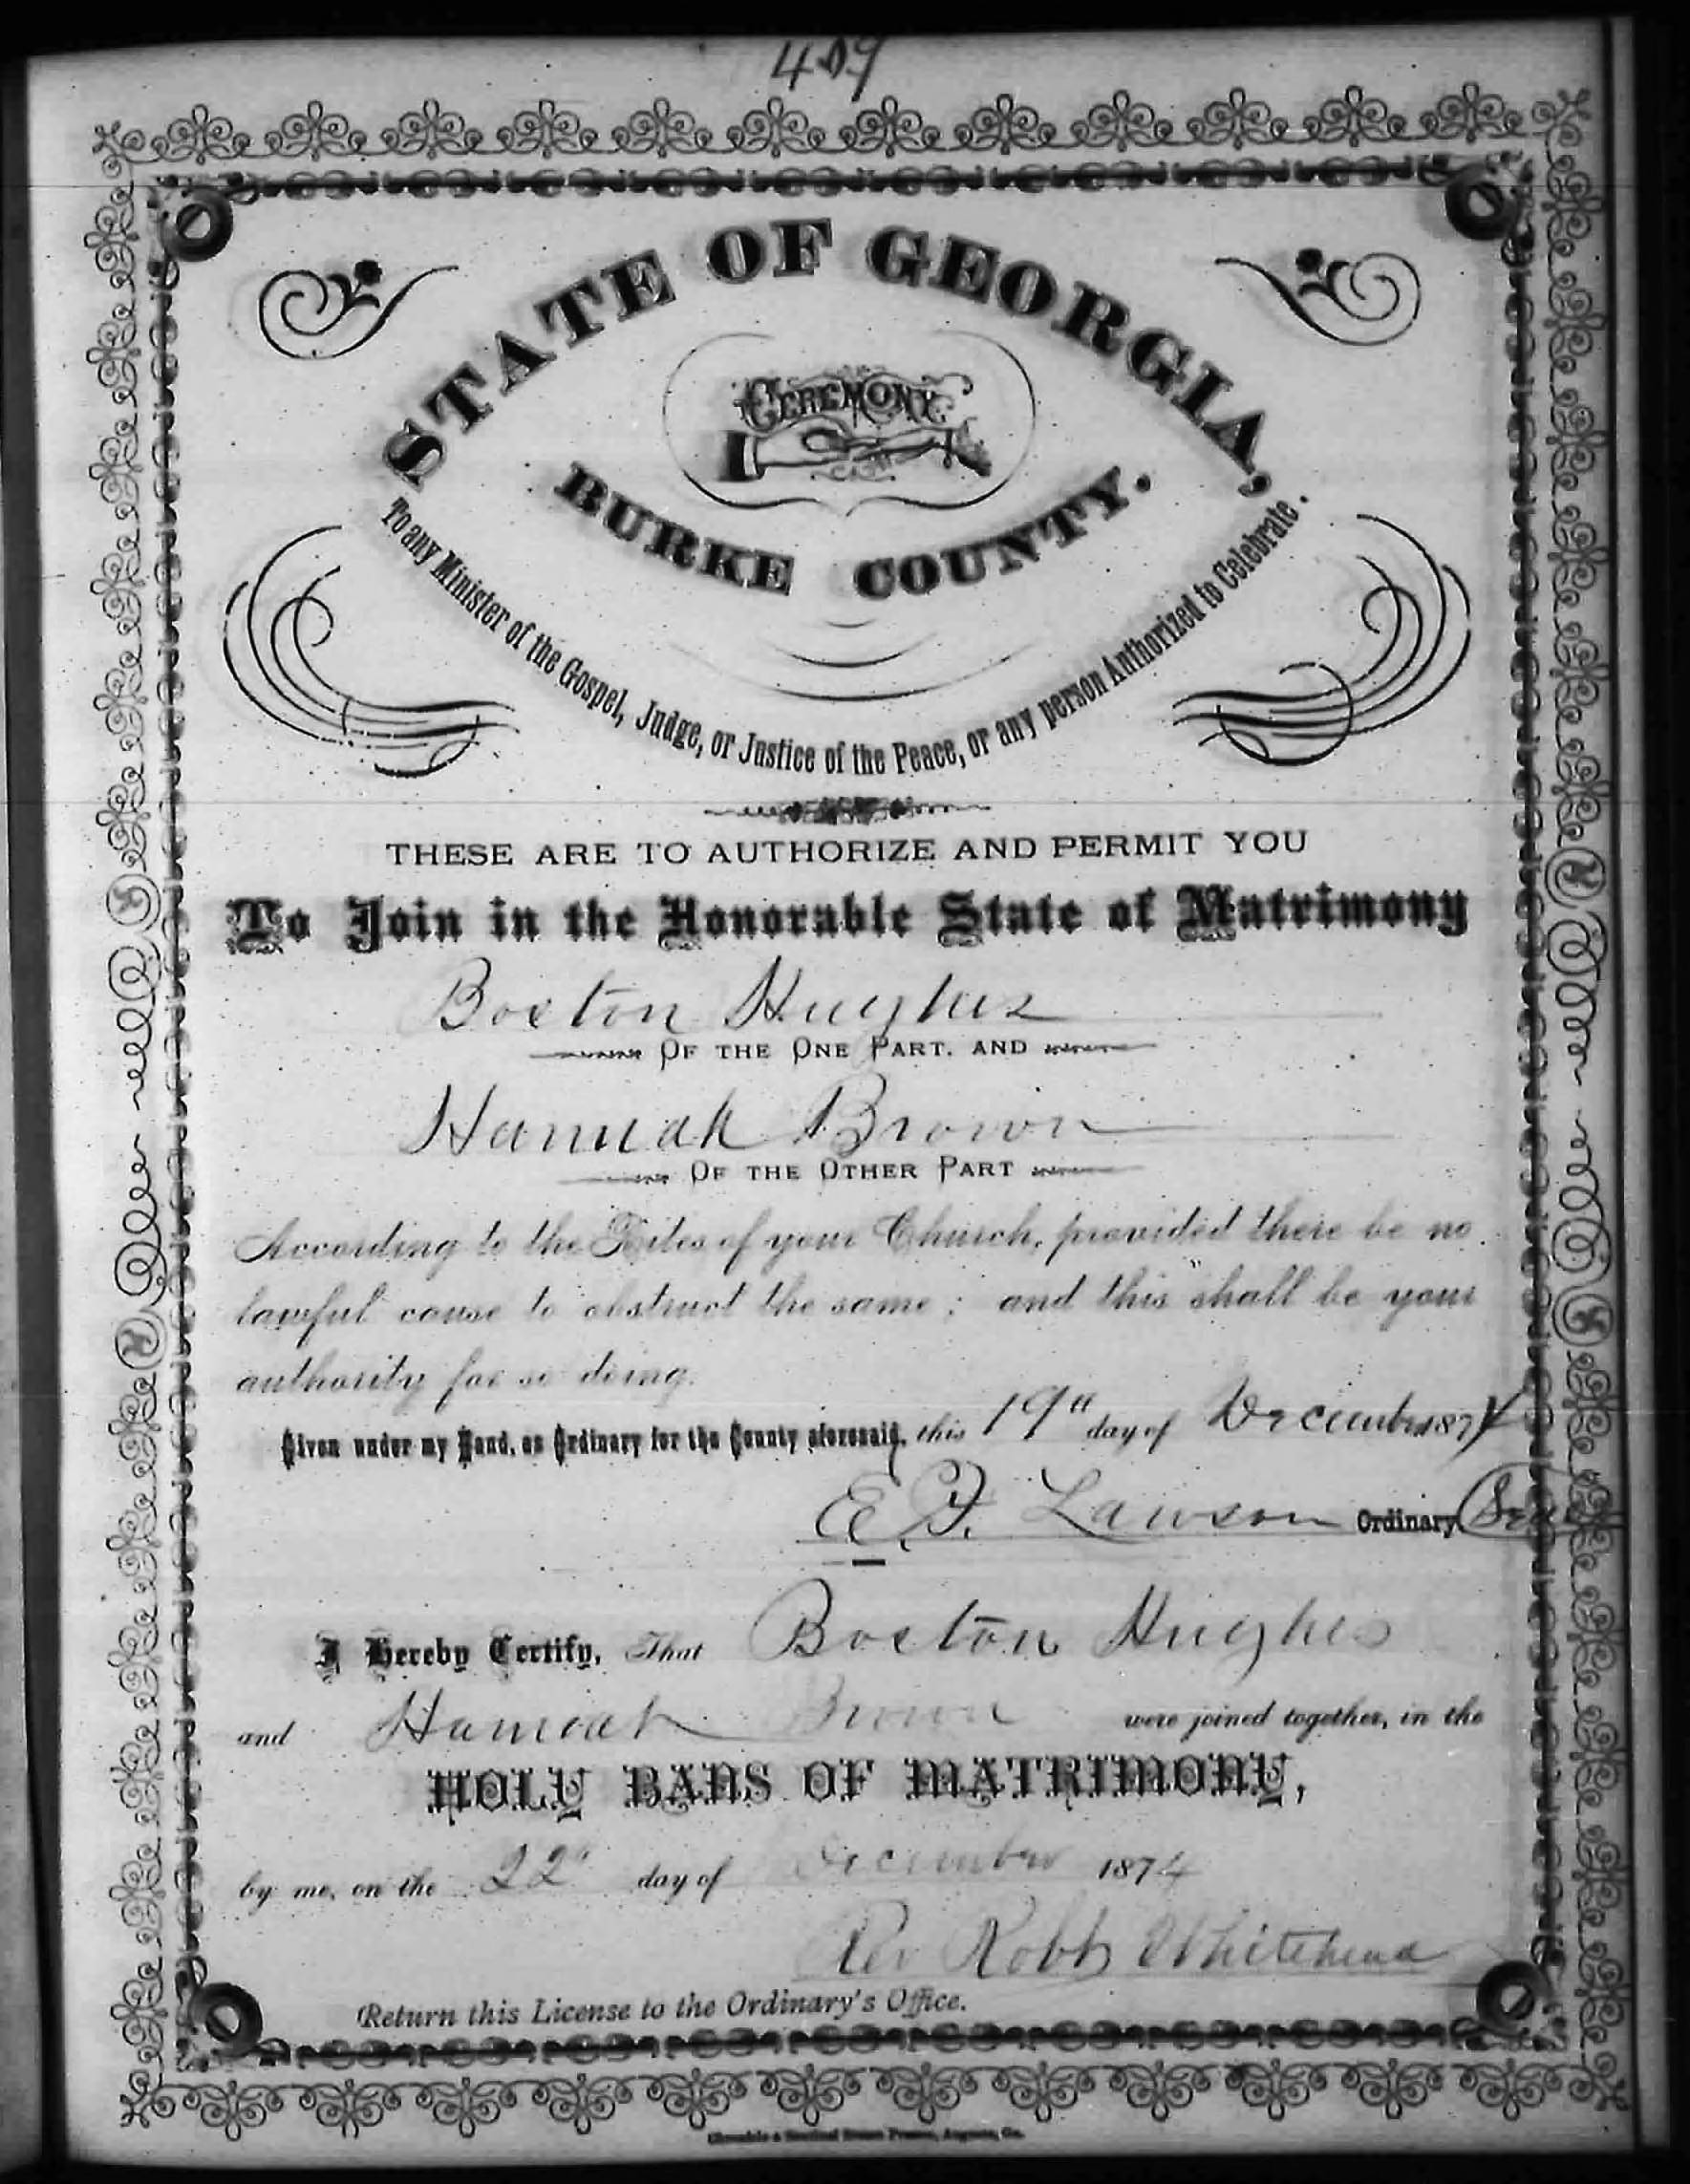 409
STATE OF GEORGIA,
CEREMONY
BURKE COUNTY.
To any Minister of the Gospel, Judge, or Justice of the Peace, or any person Authorized to Celebrate.
THESE ARE TO AUTHORIZE AND PERMIT YOU
To Join in the Honorable State of Matrimony
Boston Hughes
OF THE ONE PART. AND
Hannah Brown
OF THE OTHER PART
According to the Rites of your Church, provided there be no
lawful cause to obstruct the same; and this shall be your
authority for so doing.
Given under my Hand, as Ordinary for the County aforesaid, this 19" day of December 1874
E. F. Lawson Ordinary Seal
I Hereby Certify, That Boston Hughes
and Hannah Brown were joined together, in the
HOLY BANS OF MATRIMONY,
by me, on the 22" day of December 1874
Rev Robb Whitehead
Return this License to the Ordinary's Office.
Chronicle & Sentinel Steam Presses, Augusta, Ga.